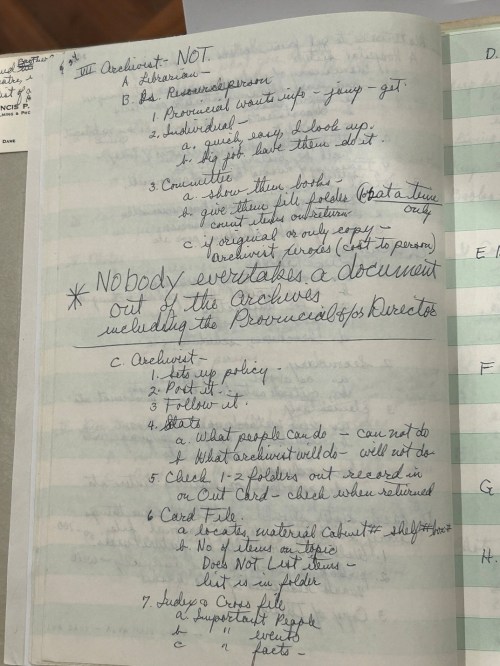 VIII Archivist - NOT.
A Librarian -
B. As Resource person
1 Provincial wants info - jump - get.
2. Individual -
a. quick, easy, I look up.
b. big job have them do it.
3. Committee
a - show them books -
b. give them file folder (1 at a time only
count items on return
c if original or only copy -
archivist xeroxes (cost to person)
* Nobody ever takes a document
out of the archives
including the Provincial &/or Director
C. Archivist -
1. Sets up policy -
2. Post it.
3 Follow it.
4. State
a. What people can do - can not do
b What archivist will do - will not do
5. Check 1-2 folders out record in
on Out Card - check when returned
6 Card File.
a locates material Cabinet # shelf # box #
b. No of items on topic
Does Not List items -
list is in folder
7. Index & Cross file
a Important People
b " events
c " facts -
NCIS P.
DAME
D.
E
F
G
H.